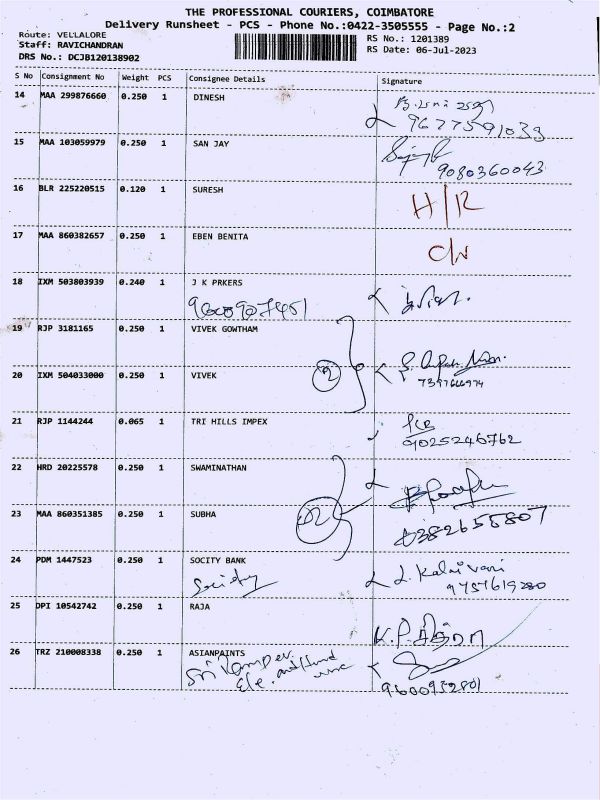 THE PROFESSIONAL COURIERS, COIMBATORE
Delivery Runsheet - PCS - Phone No.:0422-3505555 - Page No.:2
Route: VELLALORE
RS No.: 1201389
Staff: RAVICHANDRAN
RS Date: 06-Jul-2023
DRS No.: DCJB120138902
S No Consignment No Weight PCS Consignee Details Signature
14 MAA 299876660 0.250 1 DINESH
9677591033
15 MAA 103059979 0.250 1 SAN JAY
9080360043
16 BLR 225220515 0.120 1 SURESH H/R
17 MAA 860382657 0.250 1 EBEN BENITA
18 IXM 503803939 0.240 1 J K PRKERS
9600907451
19 RJP 3181165 0.250 1 VIVEK GOWTHAM
20 IXM 504033000 0.250 1 VIVEK 2
21 RJP 1144244 0.065 1 TRI HILLS IMPEX
9025246762
22 HRD 20225578 0.250 1 SWAMINATHAN
23 MAA 860351385 0.250 1 SUBHA 02
24 PDM 1447523 0.250 1 SOCITY BANK
Society L. Kalaivani
9757619280
25 DPI 10542742 0.250 1 RAJA
K.P. சித்ரா
26 TRZ 210008338 0.250 1 ASIANPAINTS
Sri
9600952801